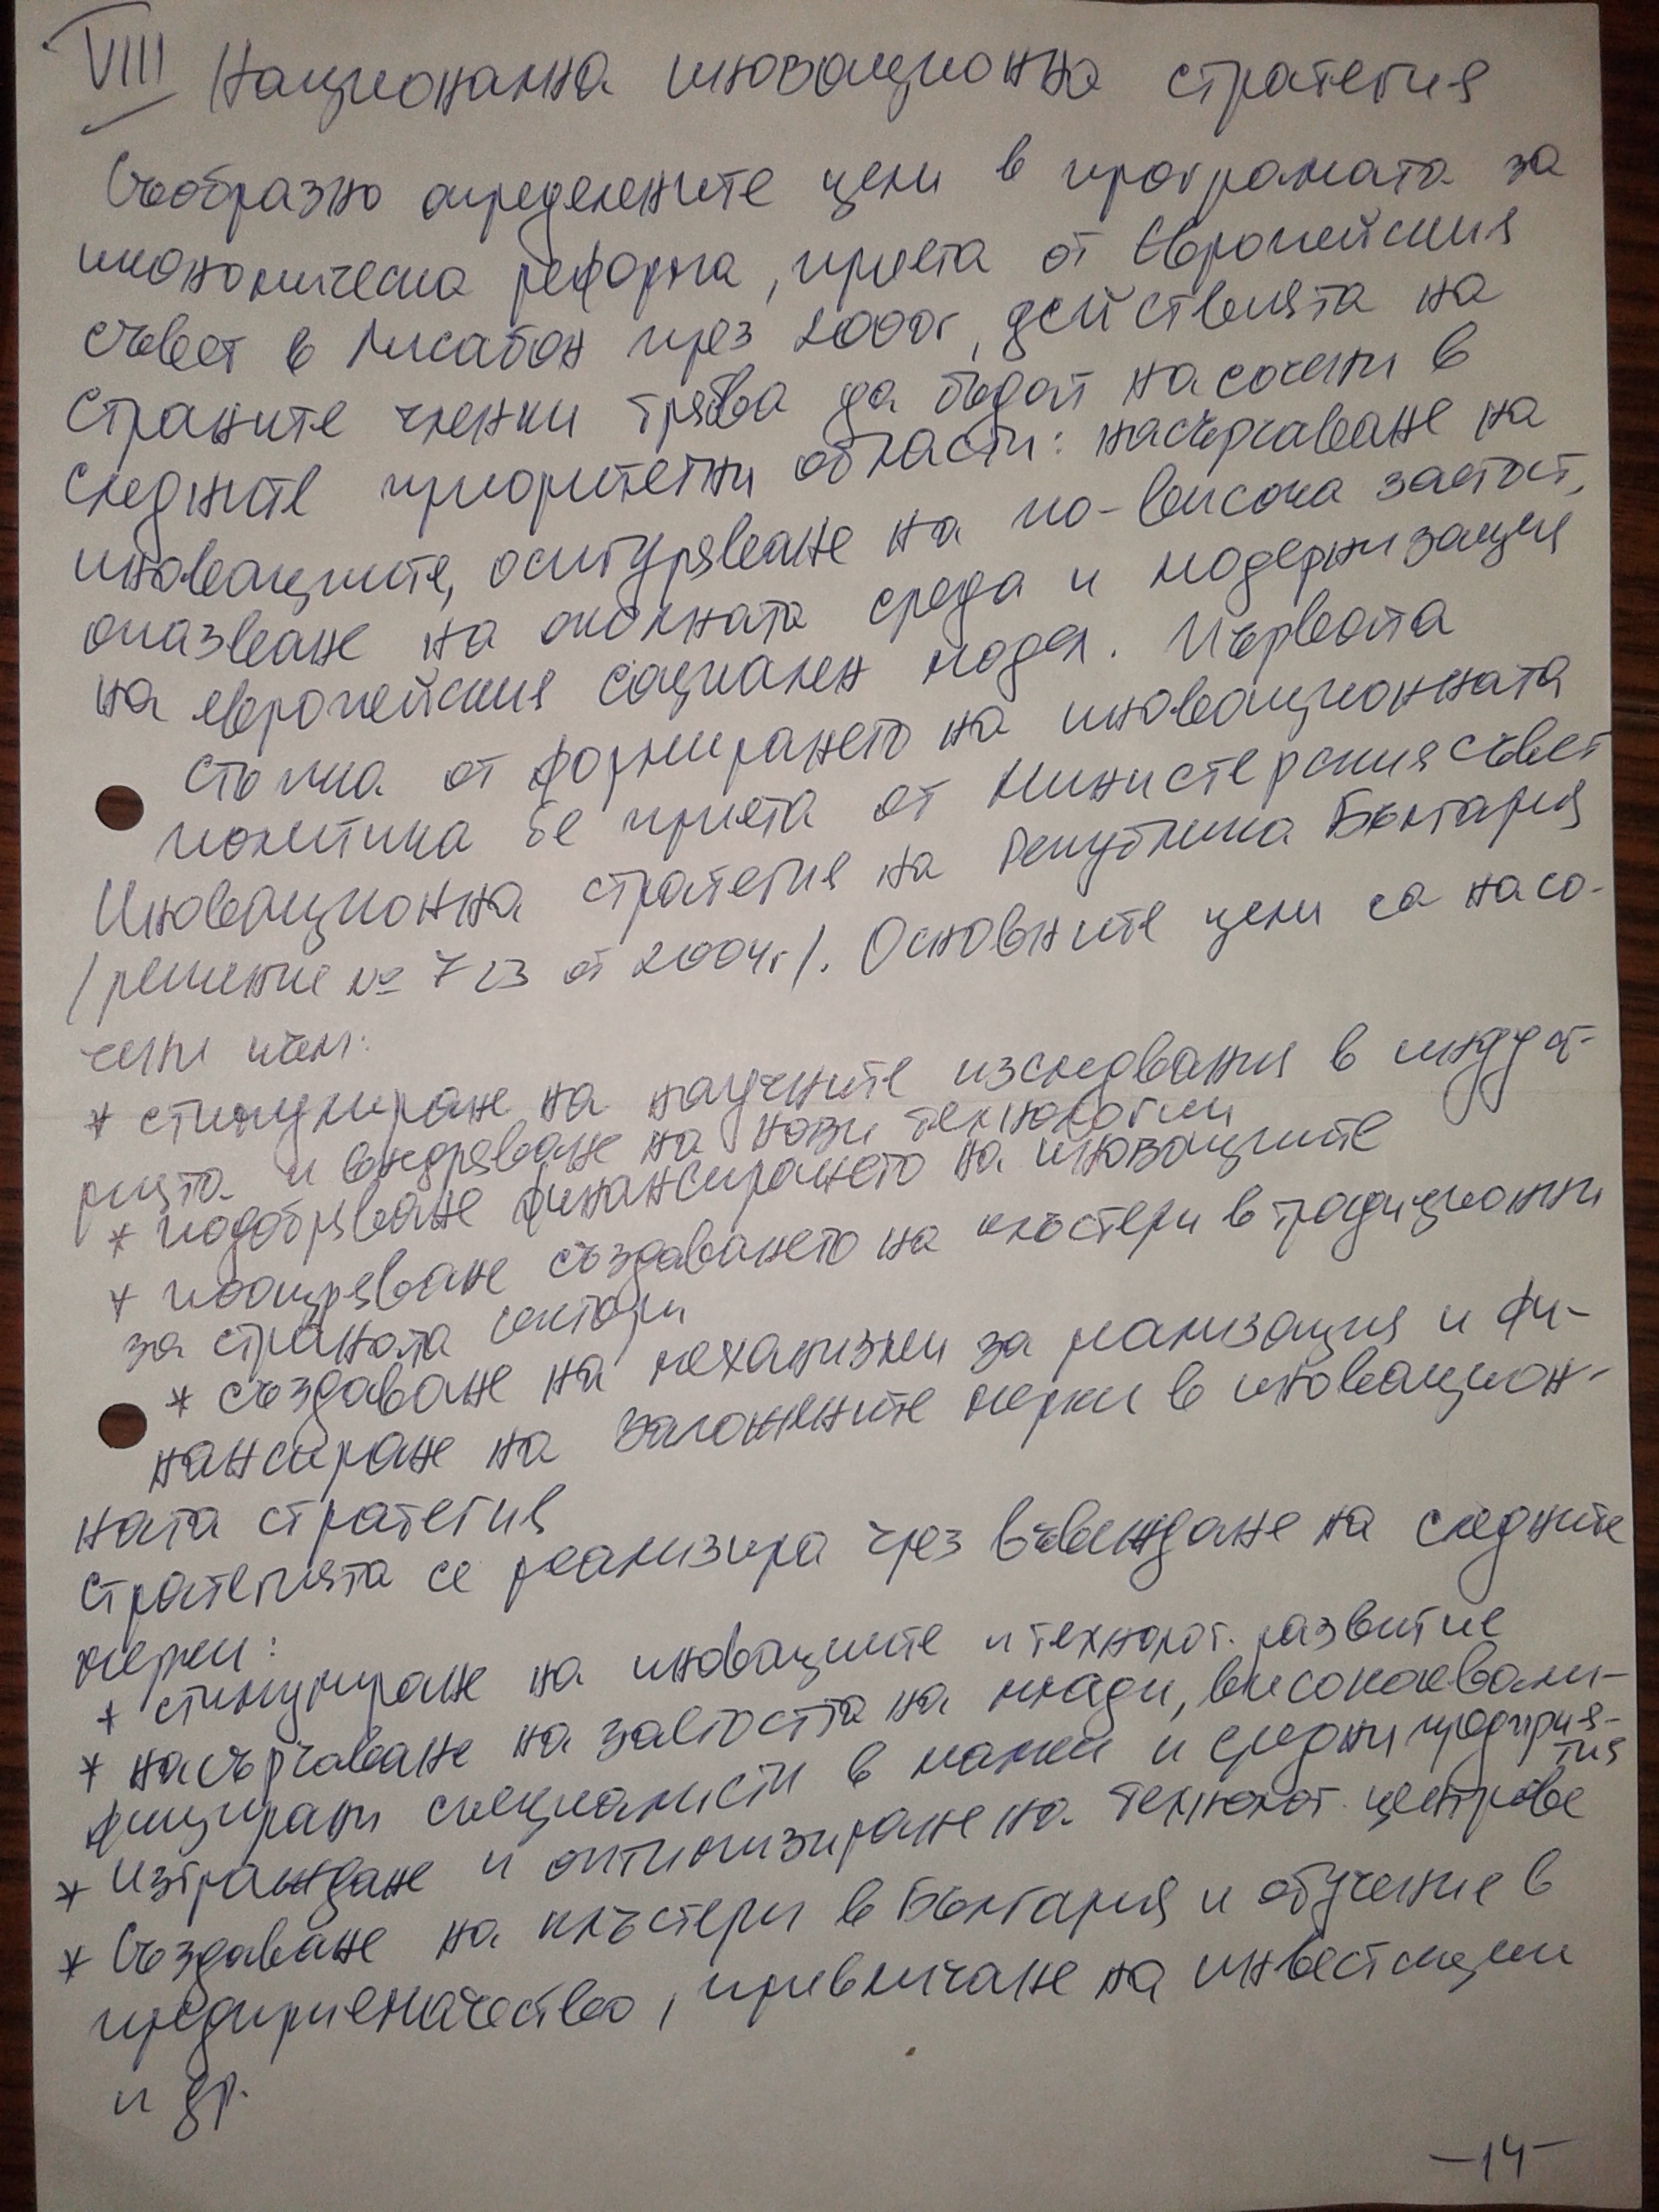 VIII Национална иновационна стратегия
Съобразно определените цели в програмата за
икономическа реформа, приета от Европейския
съвет в Лисабон през 2000г, действията на
страните членки трябва да бъдат насочени в
следните приоритетни области: насърчаване на
иновациите, осигуряване на по-висока заетост,
опазване на околната среда и модернизация
на европейския социален модел. Първата
стъпка от формирането на иновационната
политика бе приета от Министерския съвет
Иновационна стратегия на Република България
/решение № 723 от 2004г/. Основните цели са насо-
чени към:
* стимулиране на научните изследвания в индуст-
рията и внедряване на нови технологии
* подобряване финансирането на иновациите
* поощряване създаването на клъстери в традиционни
за страната сектори
* създаване на механизми за реализация и фи-
нансиране на заложените мерки в иновацион-
ната стратегия
Стратегията се реализира чрез въвеждане на следните
мерки:
* стимулиране на иновациите и технолог. развитие
* насърчаване на заетостта на млади, висококвали-
фицирани специалисти в малки и средни предприя-
тия
* Изграждане и оптимизиране на технолог. центрове
* Създаване на клъстери в България и обучение в
предприемачество, привличане на инвестиции
и др.
-14-